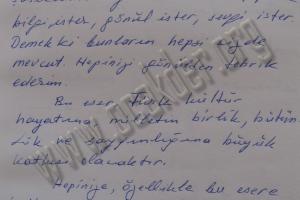 bilgi ister, gönül ister, sevgi ister.
Demek ki bunların hepsi sizde
mevcut. Hepinizi gönülden tebrik
ederim.
Bu eser, Türk kültür
hayatına, milletin birlik, bütün
lük ve saygınlığına büyük
katkısı olacaktır.
Hepinize, özellikle bu esere
www.pankder.org